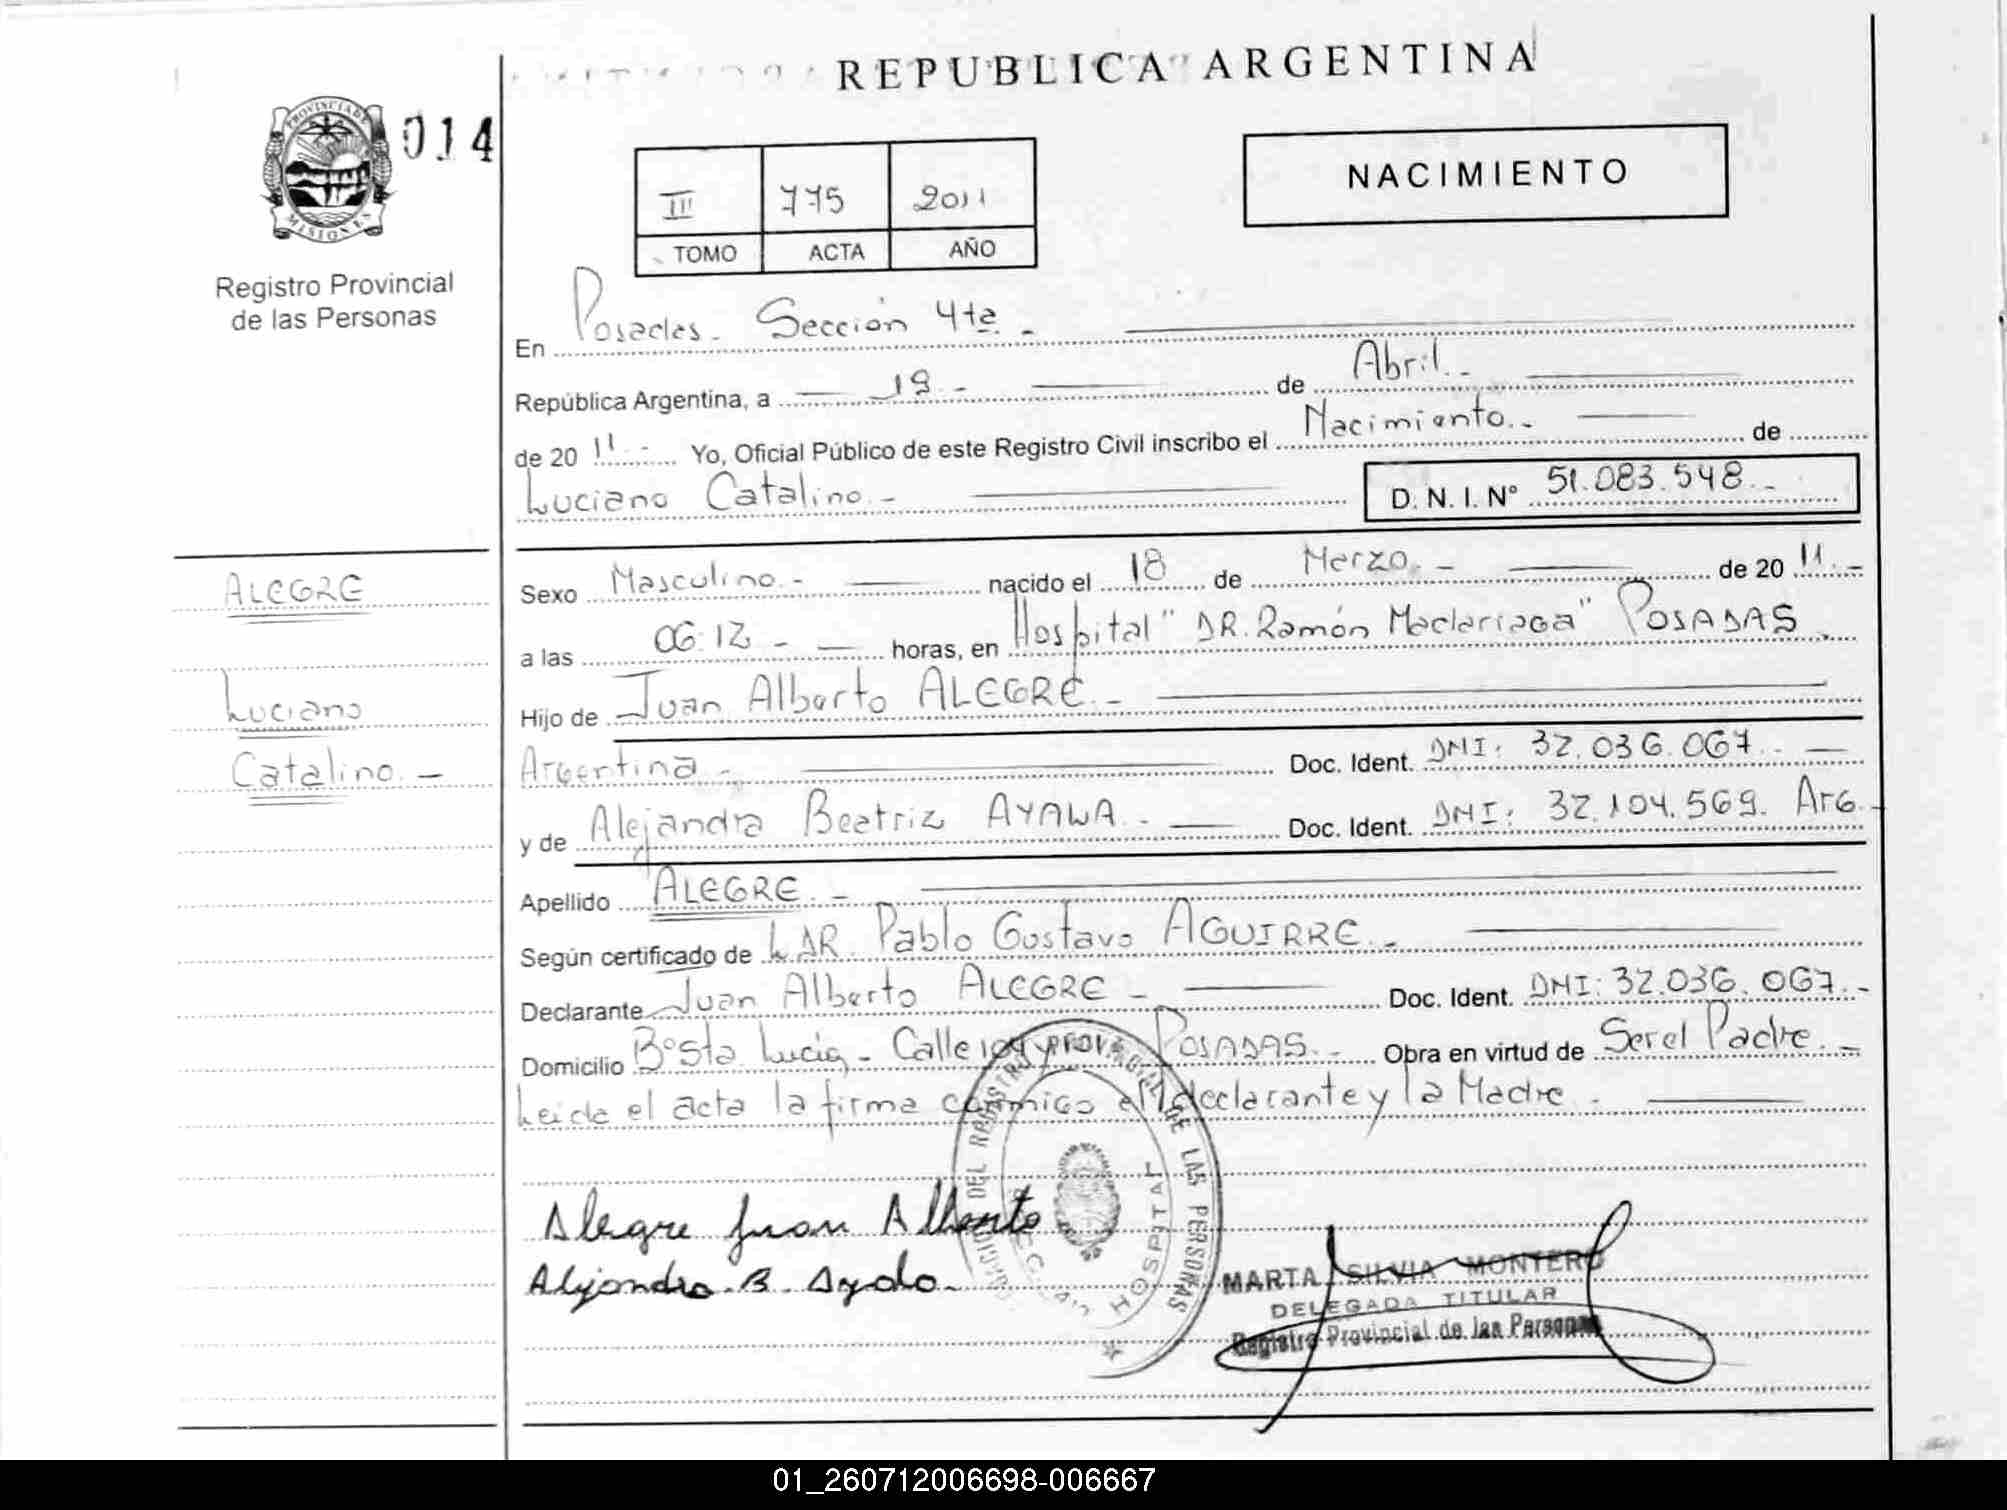 REPUBLICA ARGENTINA
PROVINCIA DE
MISIONES
014
Registro Provincial
de las Personas
III 775 2011
TOMO ACTA AÑO
NACIMIENTO
En Posadas - Sección 4ta. -
República Argentina, a 19 - de Abril. -
de 20 11. - Yo, Oficial Público de este Registro Civil inscribo el Nacimiento. - de
Luciano Catalino. - D. N. I. N° 51.083.548. -
ALEGRE
Luciano
Catalino. -
Sexo Masculino. - nacido el 18 de Marzo. - de 20 11. -
a las 06:12 - horas, en Hospital "DR. Ramón Madariaga" POSADAS.
Hijo de Juan Alberto ALEGRE. -
Argentina - Doc. Ident. DNI: 32.036.067. -
y de Alejandra Beatriz AYALA. - Doc. Ident. DNI: 32.104.569. Arg.
Apellido ALEGRE. -
Según certificado de L DR. Pablo Gustavo AGUIRRE. -
Declarante Juan Alberto ALEGRE - Doc. Ident. DNI: 32.036.067. -
Domicilio B° Sta Lucia - Calle POSADAS. - Obra en virtud de Ser el Padre. -
Leida el acta la firma conmigo el declarante y la Madre. -
Alegre Juan Alberto
Alejandra B. Ayala.
DEL REGISTRO PROVINCIAL DE LAS PERSONAS
HOSPITAL
MARTA SILVIA MONTERO
DELEGADA TITULAR
Registro Provincial de las Personas
01_260712006698-006667